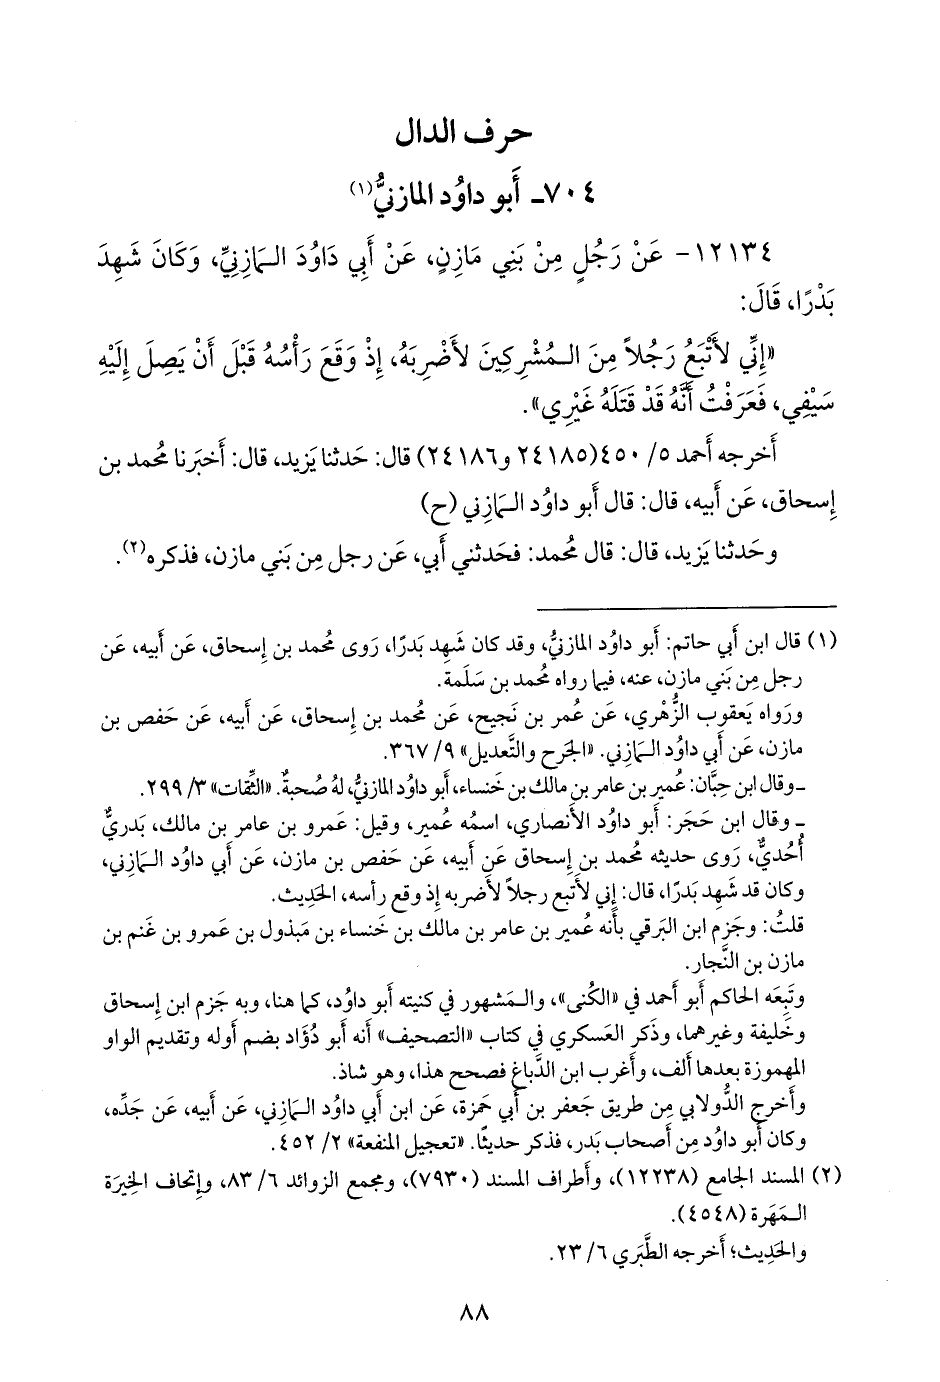 حرف الدال
٧٠٤ـ أَبو داوُد المازنيُّ(١)
١٢١٣٤- عَنْ رَجُلٍ مِنْ بَنِي مَازِنٍ، عَنْ أَبِي دَاوُدَ الـمَازِنِيِّ، وَكَانَ شَهِدَ
بَدْرًا، قَالَ:
«إِنِّي لأَتْبَعُ رَجُلاً مِنَ الـمُشْرِكِينَ لأَضْرِبَهُ، إِذْ وَقَعَ رَأْسُهُ قَبْلَ أَنْ يَصِلَ إِلَيْهِ
سَيْفِي، فَعَرَفْتُ أَنَّهُ قَدْ قَتَلَهُ غَيْرِي».
أَخرجه أَحمد ٥/ ٤٥٠(٢٤١٨٥ و٢٤١٨٦) قال: حَدثنا يَزيد، قال: أَخبَرنا مُحمد بن
إِسحاق، عَن أَبيه، قال: قال أَبو داوُد الـمَازِني (ح)
وحَدثنا يَزيد، قال: قال مُحمد: فحَدثني أَبي، عَن رجل مِن بَني مازن، فذكره(٢).
(١) قال ابن أَبي حاتم: أَبو داوُد المازنيُّ، وقد كان شَهِد بَدرًا، رَوى مُحمد بن إِسحاق، عَن أَبيه، عَن
رجل مِن بَني مازن، عنه، فيما رواه مُحمد بن سَلَمة.
ورَواه يَعقوب الزُّهْري، عَن عُمر بن نَجيح، عَن مُحمد بن إِسحاق، عَن أَبيه، عَن حَفص بن
مازن، عَن أَبي داوُد الـمَازِني. «الجَرح والتَّعديل» ٩/ ٣٦٧.
ـ وقال ابن حِبَّان: عُمير بن عامر بن مالك بن خَنساء، أَبو داوُد المازنيُّ، لهُ صُحبةٌ. «الثِّقات» ٣/ ٢٩٩.
ـ وقال ابن حَجَر: أَبو داوُد الأَنصاري، اسمُه عُمير، وقيل: عَمرو بن عامر بن مالك، بَدريٌّ
أُحُديٌّ، رَوى حديثه مُحمد بن إِسحاق عَن أَبيه، عَن حَفص بن مازن، عَن أَبي داوُد الـمَازِني،
وكان قد شَهِد بَدرًا، قال: إِني لأَتبع رجلاً لأَضربه إِذ وقع رأسه، الحَدِيث.
قلتُ: وجَزم ابن البَرقي بأَنه عُمير بن عامر بن مالك بن خَنساء بن مَبذول بن عَمرو بن غَنم بن
مازن بن النَّجار.
وتَبِعَه الحاكم أَبو أَحمد في «الكُنى»، والـمَشهور في كنيته أَبو داوُد، كما هنا، وبه جَزم ابن إِسحاق
وخَليفة وغيرهما، وذَكر العَسكري في كتاب «التصحيف» أَنه أَبو دُؤَاد بضم أَوله وتقديم الواو
المهموزة بعدها أَلف، وأَغرب ابن الدَّباغ فصحح هذا، وهو شاذ.
وأَخرج الدُّولابي مِن طريق جَعفر بن أَبي حَمزة، عَن ابن أَبي داوُد الـمَازِني، عَن أَبيه، عَن جَدِّه،
وكان أَبو داوُد مِن أَصحاب بَدر، فذكر حديثًا. «تعجيل المنفعة» ٢/ ٤٥٢.
(٢) المسند الجامع (١٢٢٣٨)، وأَطراف المسند (٧٩٣٠)، ومجمع الزوائد ٦/ ٨٣، وإِتحاف الخِيرَة
الـمَهَرة (٤٥٤٨).
والحَدِيث؛ أَخرجه الطَّبَري ٦/ ٢٣.
٨٨